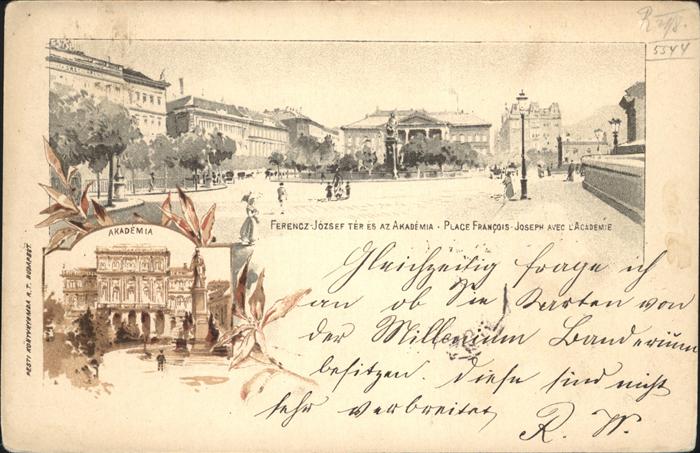 R 2/8.
5544
FERENCZ-JÓZSEF TÉR ÉS AZ AKADÉMIA · PLACE FRANÇOIS-JOSEPH AVEC L'ACADEMIE
AKADÉMIA
PESTI KÖNYVNYOMDA R. T. BUDAPEST.
Gleichzeitig frage ich
an ob Sie Karten von
der Millenium Banderium
besitzen. Diese sind nicht
sehr verbreitet
R. W.